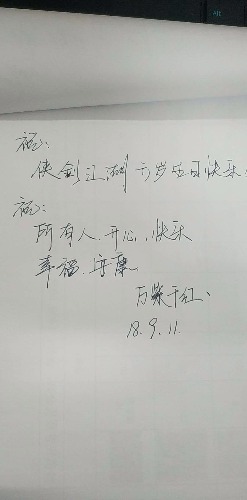 祝:
侠剑江湖六岁生日快乐
祝:
所有人、开心、快乐
幸福、安康
万紫千红、
18.9.11.